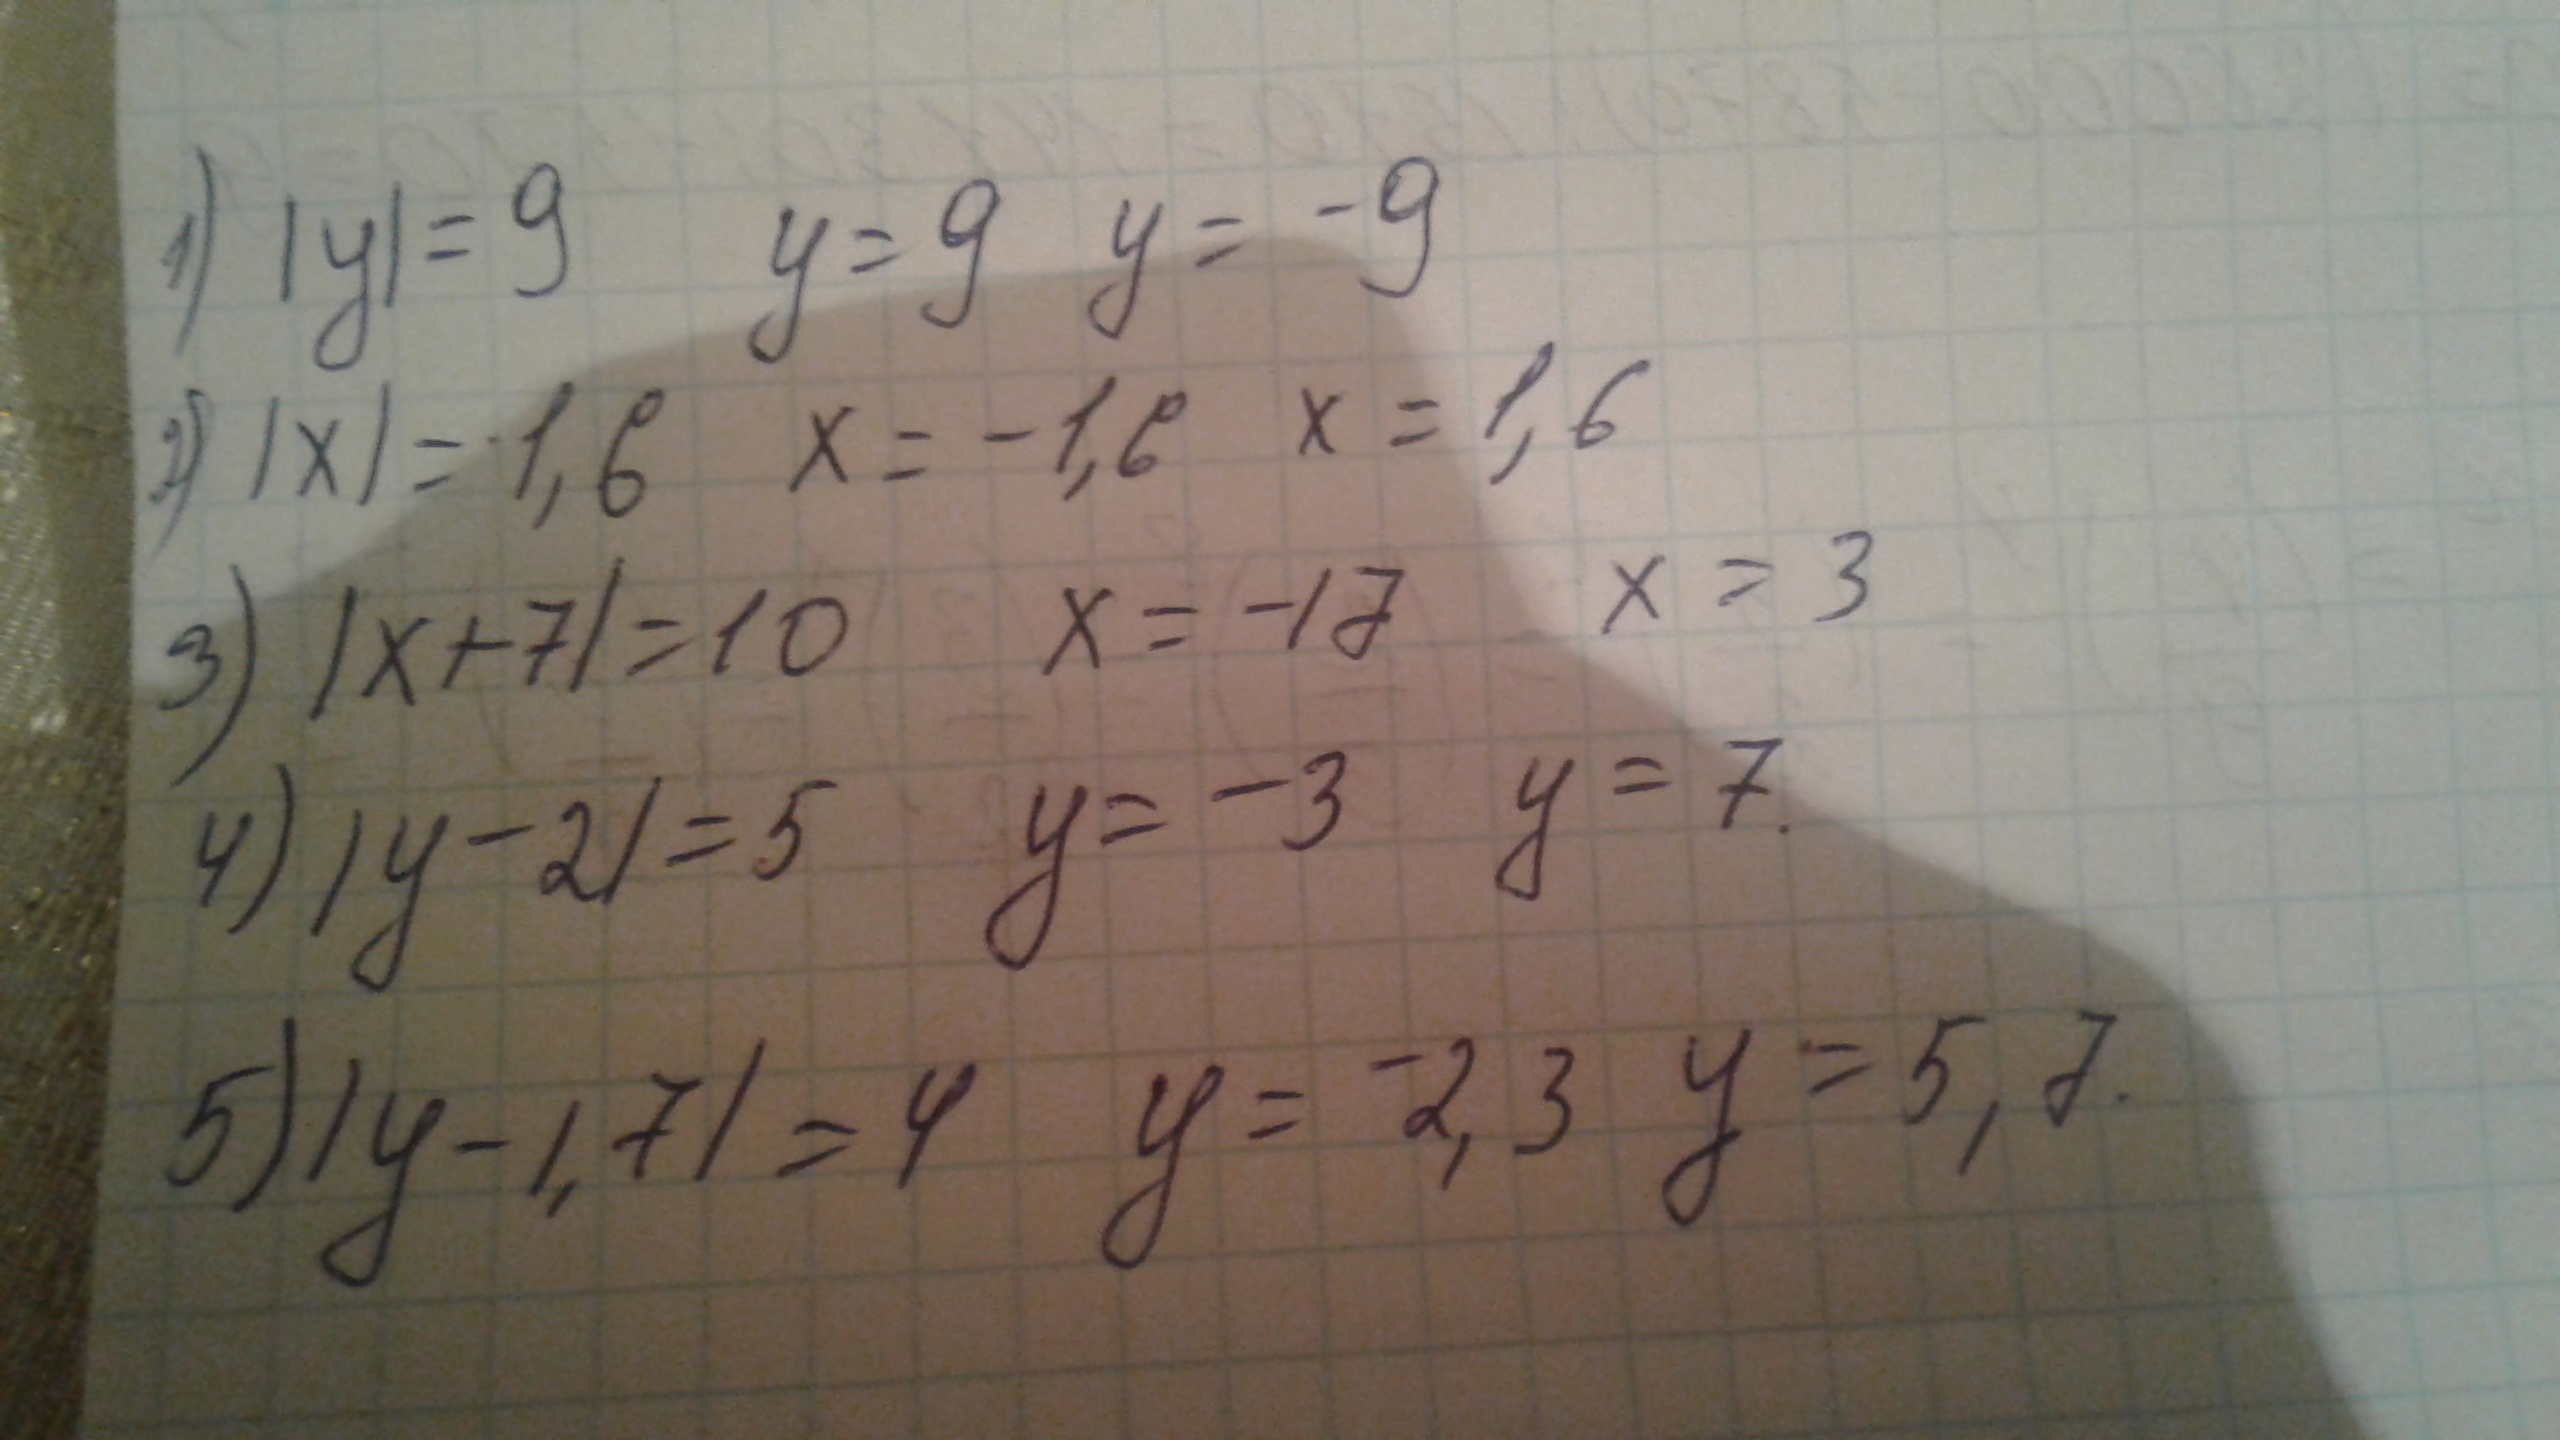 1) |y| = 9 y = 9 y = -9
2) |x| = 1,6 x = -1,6 x = 1,6
3) |x+7| = 10 x = -17 x = 3
4) |y-2| = 5 y = -3 y = 7.
5) |y-1,7| = 4 y = -2,3 y = 5,7.